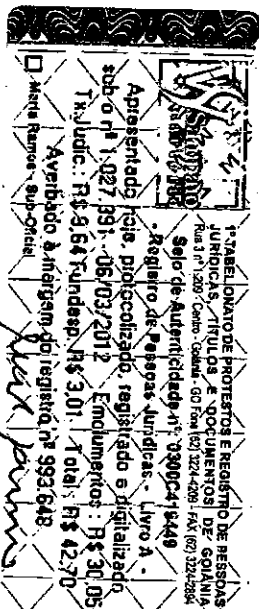 1º TABELIONATO DE PROTESTOS E REGISTRO DE PESSOAS
JURÍDICAS, TÍTULOS E DOCUMENTOS DE GOIÂNIA
Centro - Goiânia - GO Fone (62) 3224-4209 - FAX (62) 3224-2894
Selo de Autenticidade nº 0300C419449
- Registro de Pessoas Jurídicas - Livro A -
Apresentado hoje, protocolizado, registrado e digitalizado
sob o nº 1.027.991 - 06/03/2012 Emolumentos : R$ 30,05
Tx.Judic.: R$ 9,64 Fundesp : R$ 3,01 Total : R$ 42,70
Averbado à margem do registro nº 993.648
Maria Ramos - Sub-Oficial